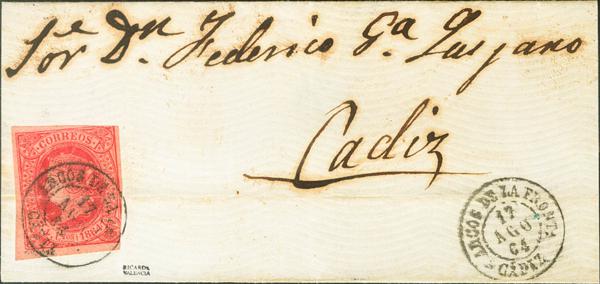 Sor. Dn. Federico Ga. Lascano
Cadiz
CORREOS
ARCOS DE LA FRONTA
17
AGO
64
CADIZ
ARCOS DE LA FRONTA
17
AGO
64
CÁDIZ
RICARDA
VALENCIA